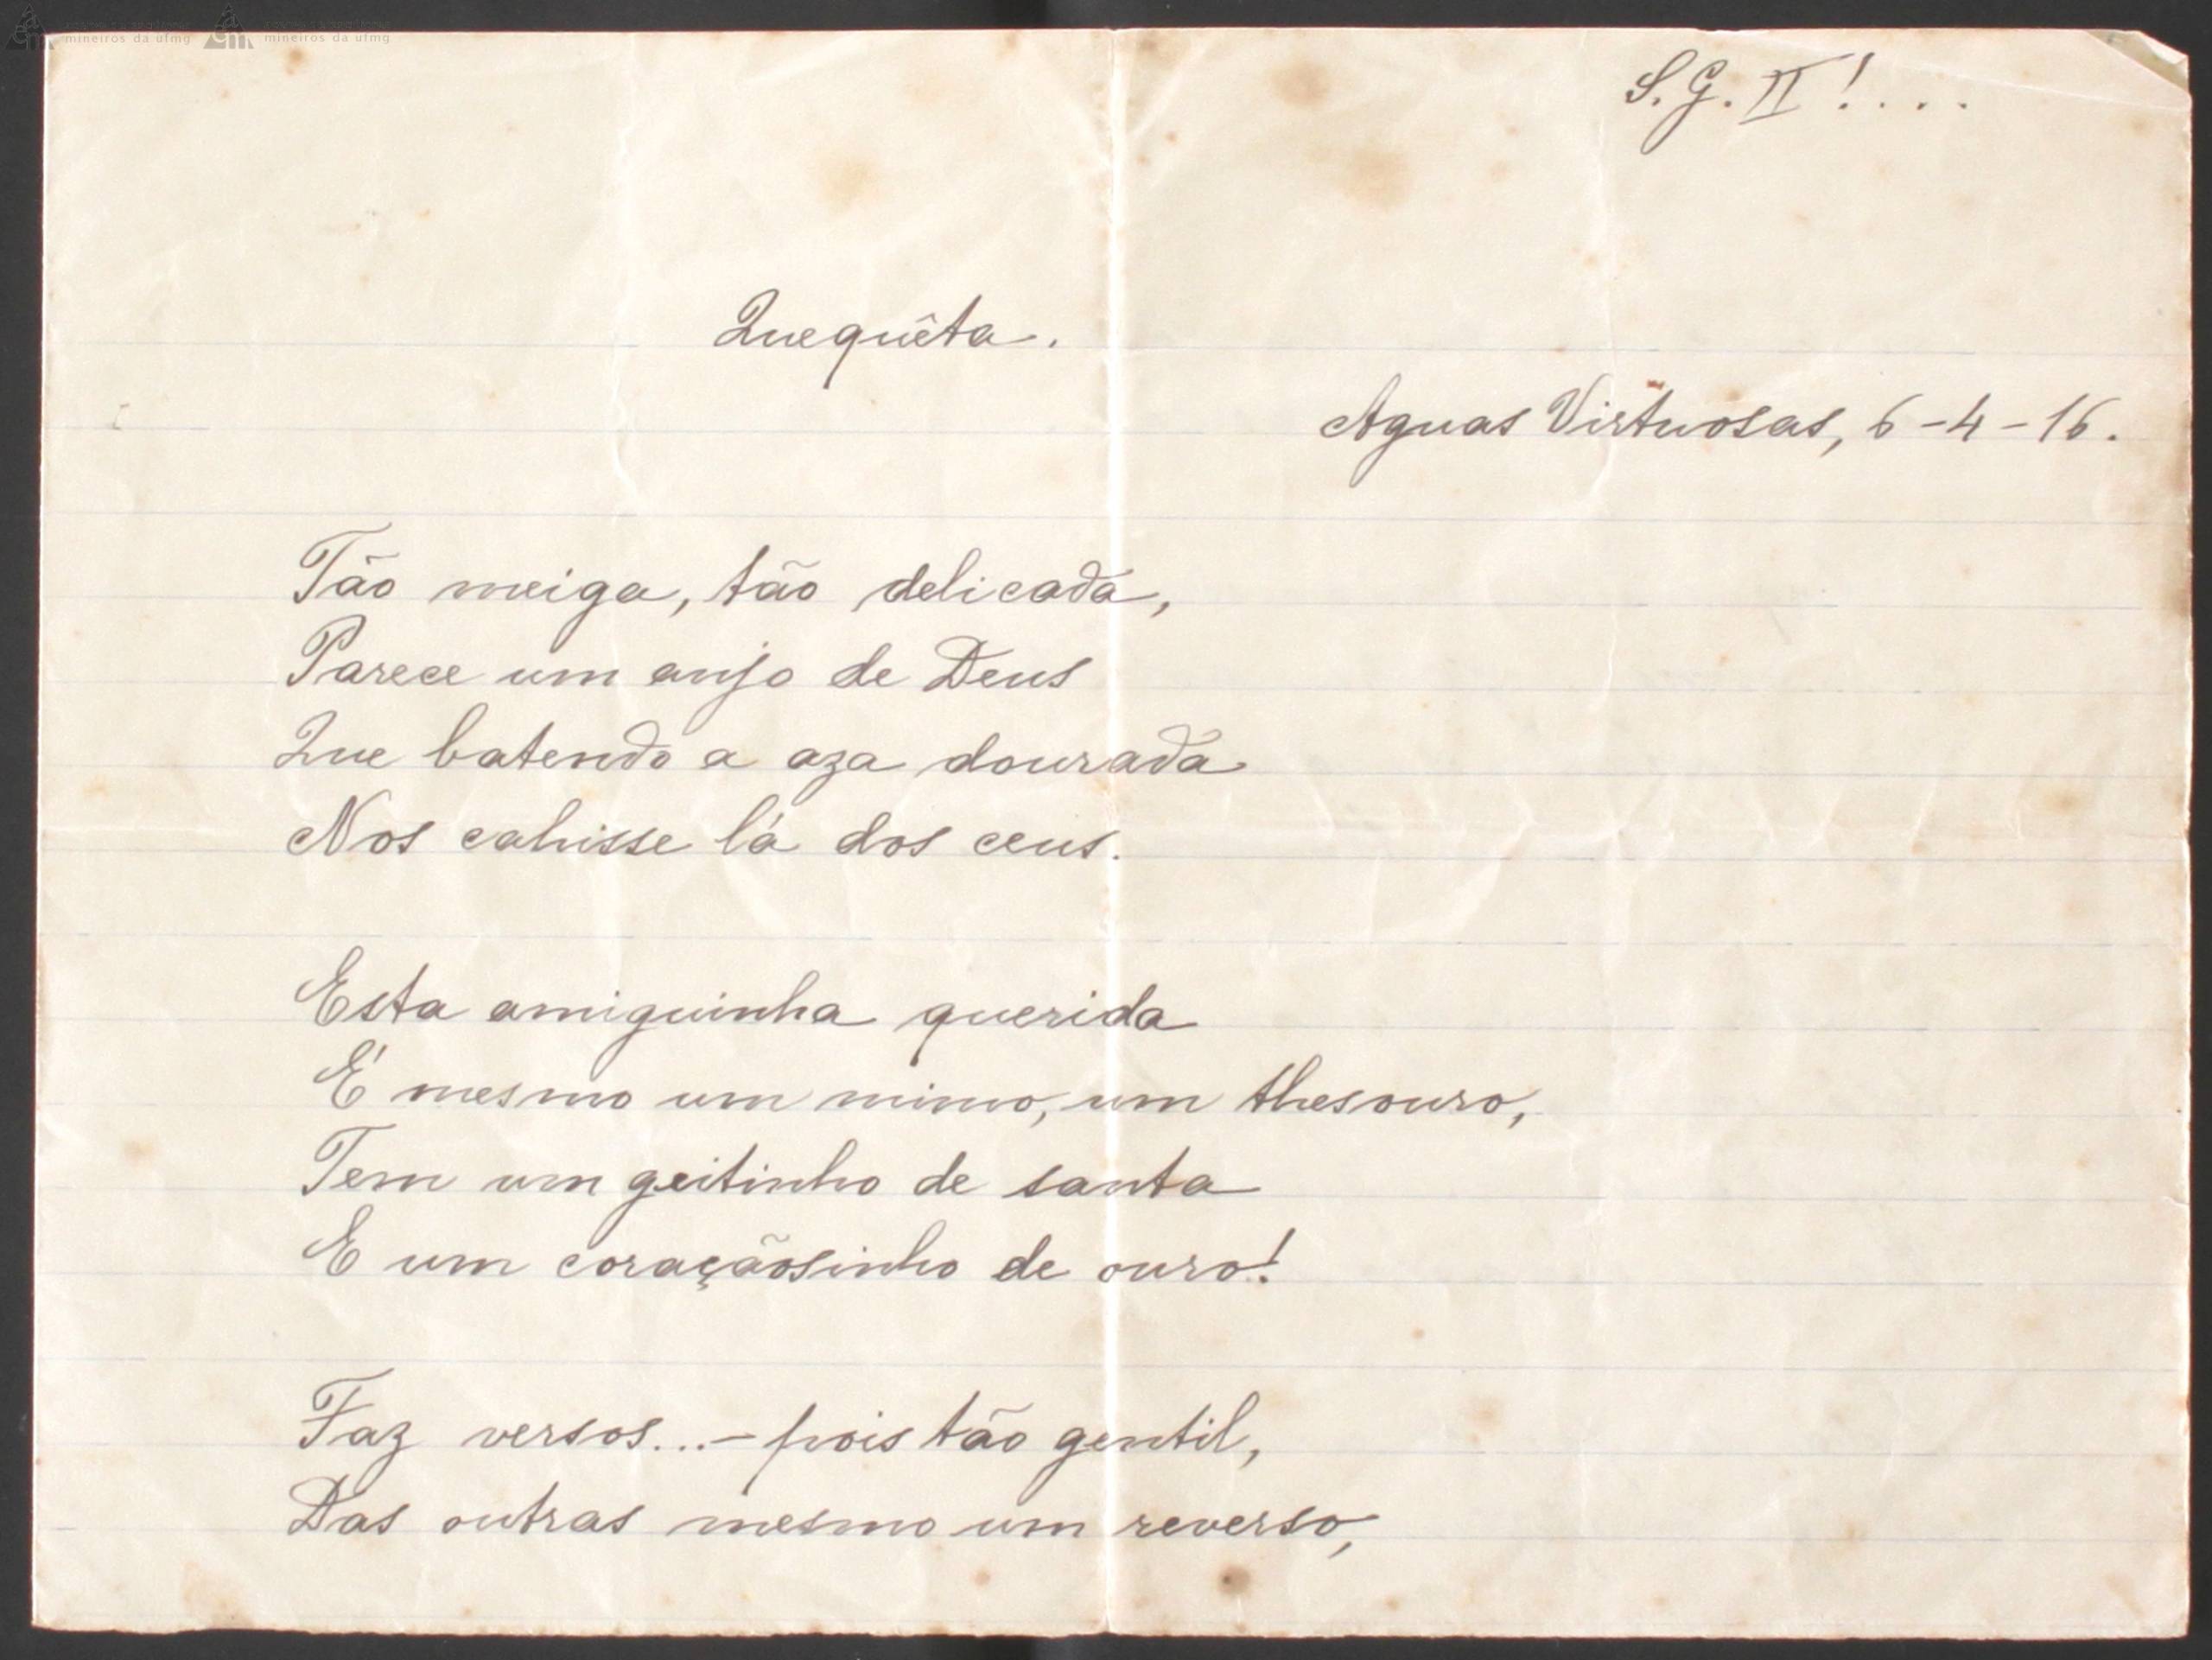 mineiros da ufmg mineiros da ufmg
S. G. II!....
Quequêta.
Aguas Virtuosas, 6-4-16.
Tão meiga, tão delicada,
Parece um anjo de Deus
Que batendo a aza dourada
Nos cahisse lá dos ceus.
Esta amiguinha querida
É mesmo um mimo, um thesouro,
Tem um geitinho de santa
E um coraçãosinho de ouro!
Faz versos...- pois tão gentil,
Das outras mesmo um reverso,